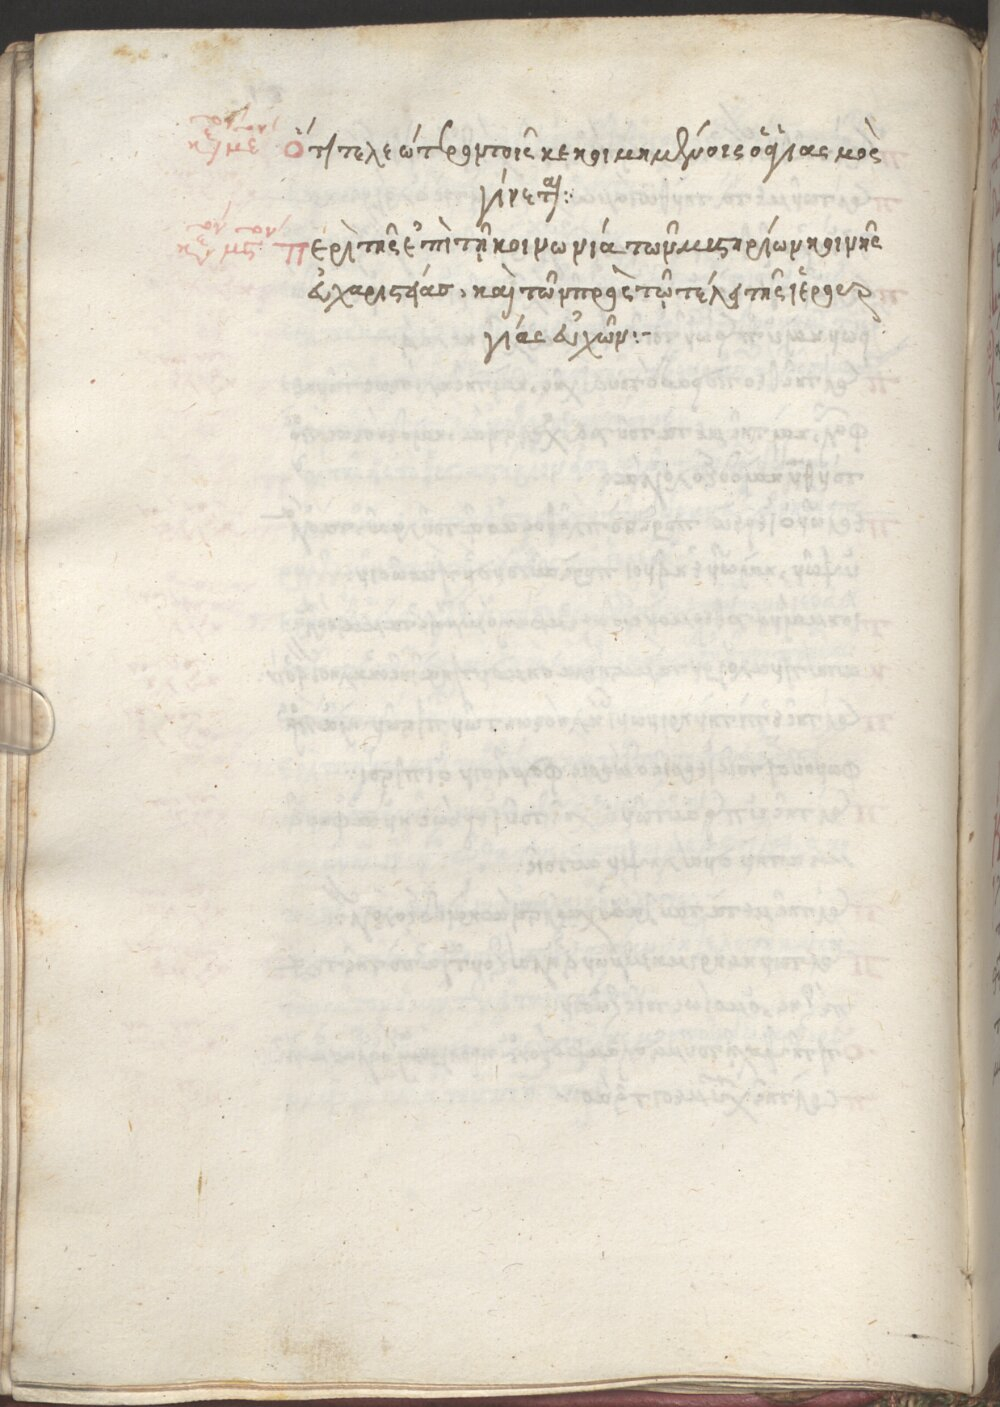 κεφ με Ὅτι τελεώτερον τοῖς κεκοιμημένοις ὁ ἁγιασμὸς
γίνεται:
κεφ μς Περὶ τῆς ἐπὶ τῇ κοινωνία τῶν μυστηρίων κοινῆς
εὐχαριστίας, καὶ τῶν πρὸς τῷ τέλει τῆς ἱερουρ
γίας εὐχῶν:-